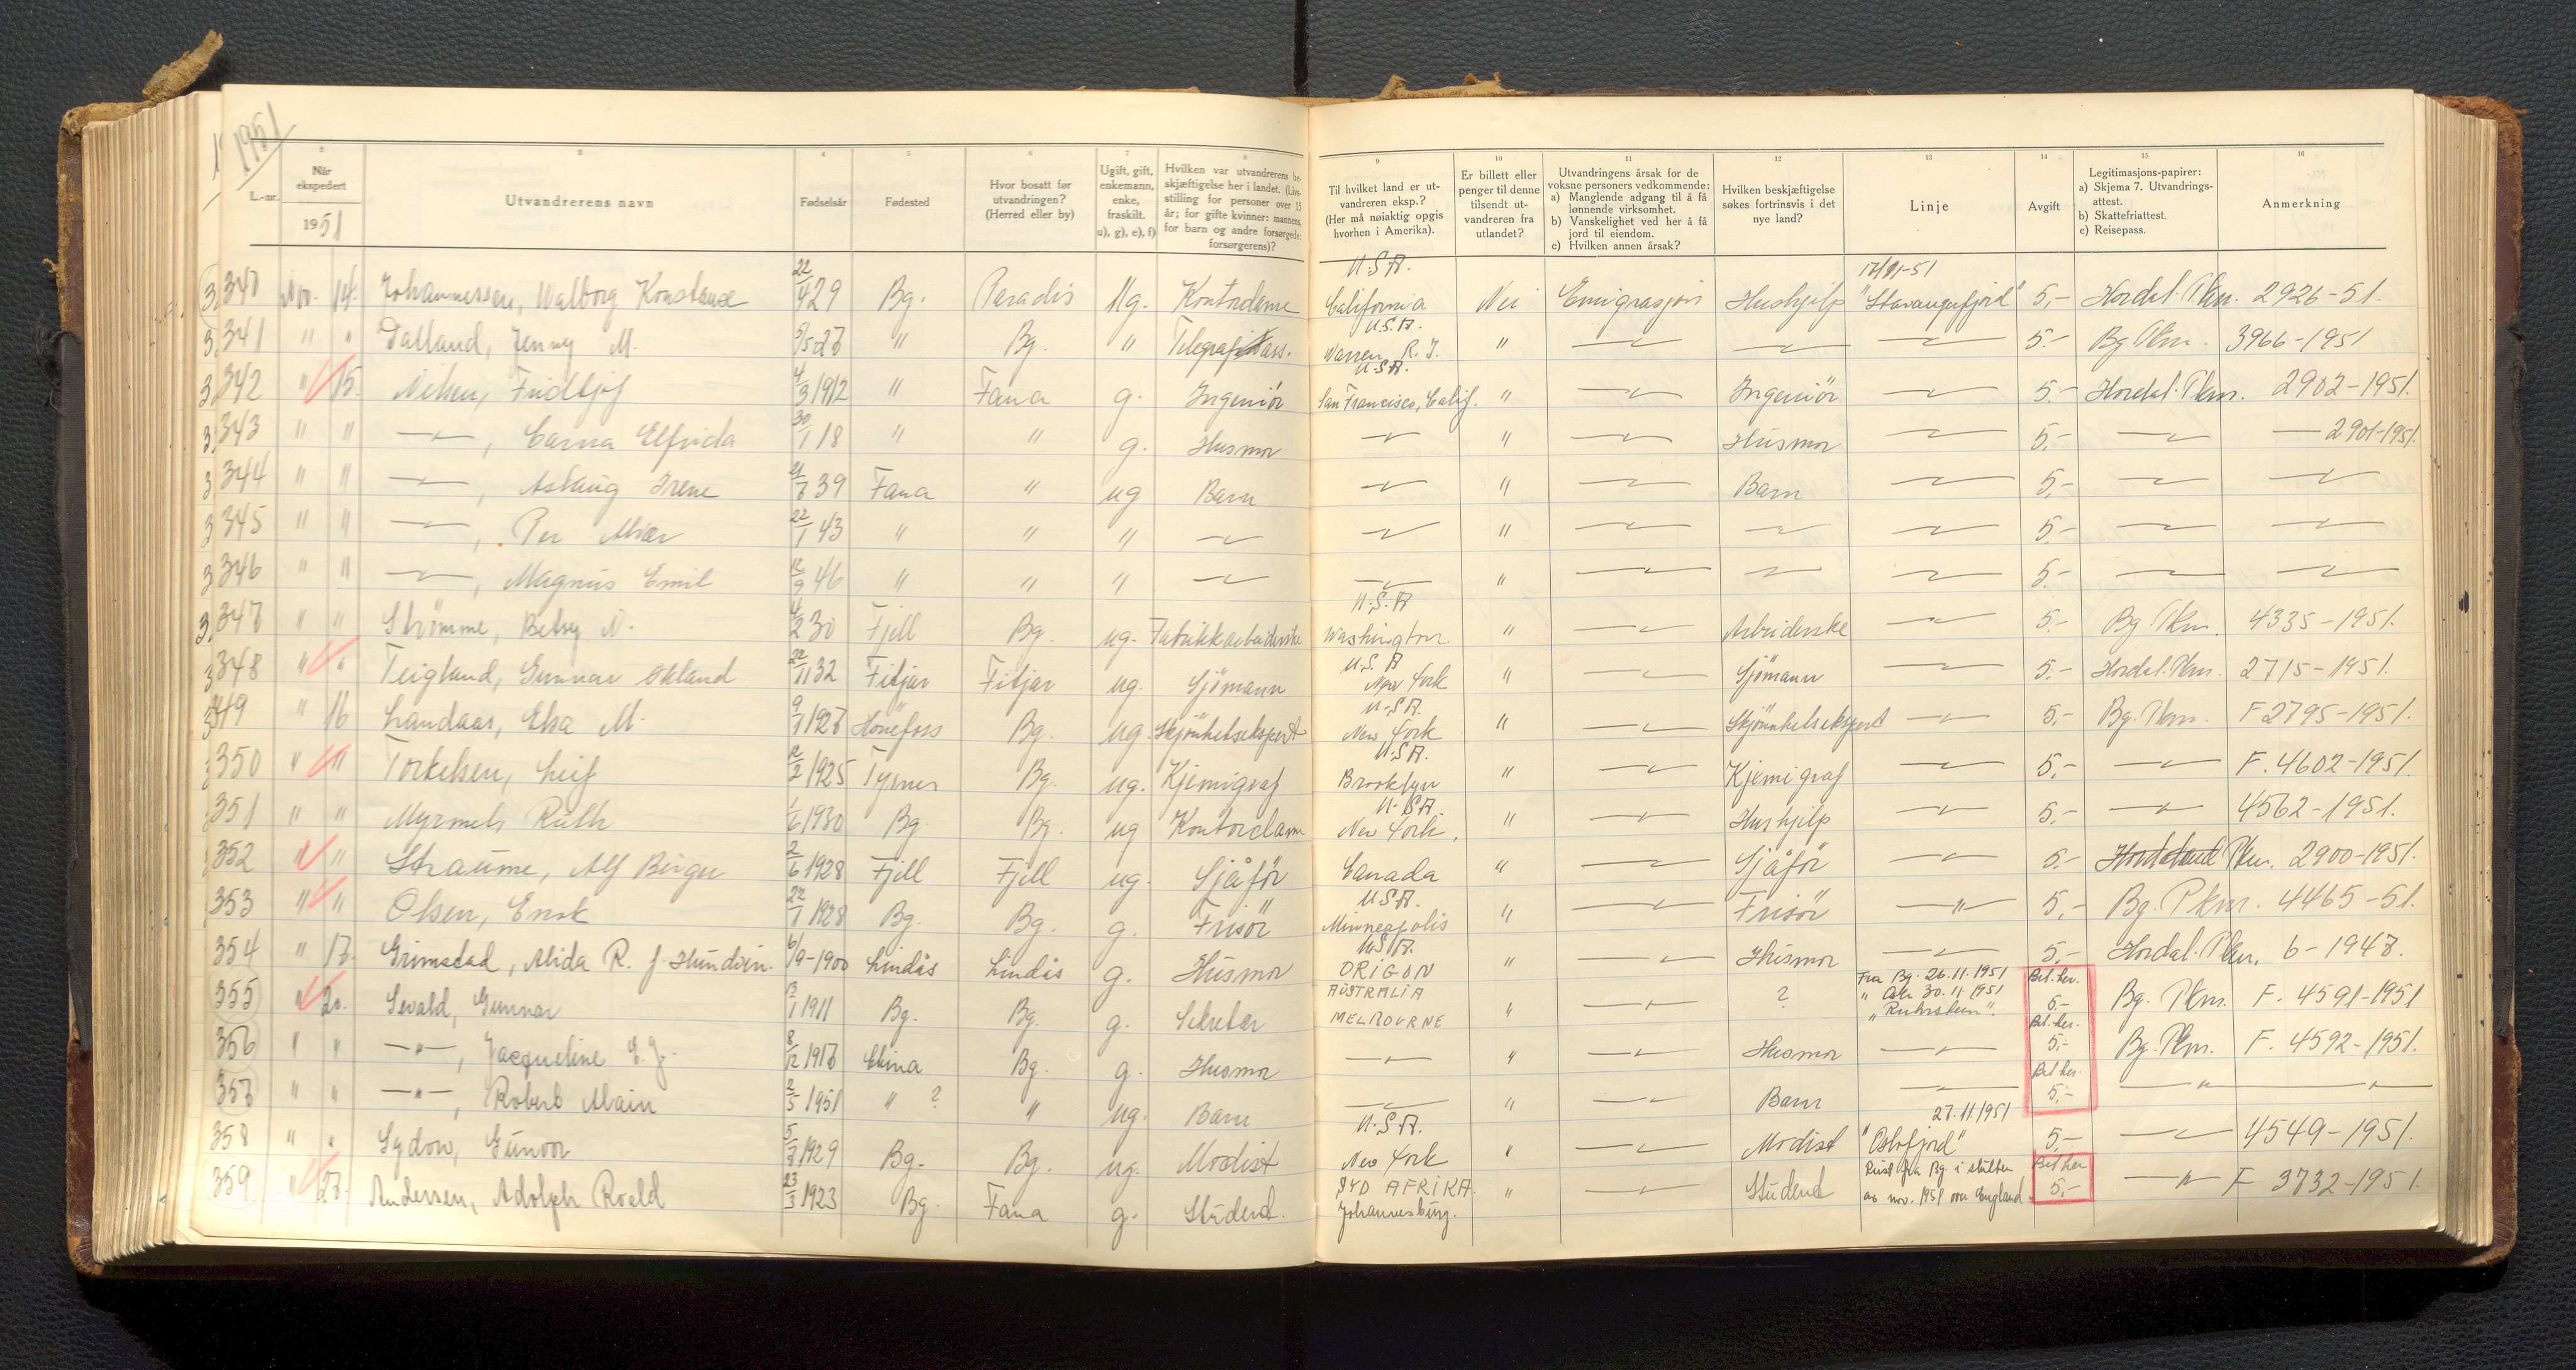 1951
2
3
4
5
6
7
8
9
10
11
12
13
14
15
16
L.-nr.
Når ekspedert
1951
Utvandrerens navn
Fødselsår
Fødested
Hvor bosatt før utvandringen? (Herred eller by)
Ugift, gift, enkemann, enke, fraskilt. u), g), e), f)
Hvilken var utvandrerens beskjæftigelse her i landet. (Livsstilling for personer over 15 år; for gifte kvinner: mannens, for barn og andre forsørgede: forsørgerens)?
Til hvilket land er utvandreren eksp.? (Her må nøiaktig opgis hvorhen i Amerika).
Er billett eller penger til denne tilsendt utvandreren fra utlandet?
Utvandringens årsak for de voksne personers vedkommende: a) Manglende adgang til å få lønnende virksomhet. b) Vanskelighet ved her å få jord til eiendom. c) Hvilken annen årsak?
Hvilken beskjæftigelse søkes fortrinsvis i det nye land?
Linje
Avgift
Legitimasjons-papirer: a) Skjema 7. Utvandringsattest. b) Skattefriattest. c) Reisepass.
Anmerkning
340 Nov. 14. Johannessen, Walborg Konstanse 22/4 29 Bg. Paradis Ug. Kontordame U.S.A. California Nei Emigrasjon Hushjelp 17/11-51 "Stavangerfjord" 5,- Hordal. Pkm. 2926-51.
341 " " Dalland, Jenny M. 5/5 27 " Bg. " Telegrafass. U.S.A. Warren, R. I. " —"— —"— —"— 5,- Bg Pkm. 3966-1951
342 " 15. Nilsen, Fridtjof 4/3 1912 " Fana g. Ingeniör U.S.A. San Francisco, Calif. " —"— Ingeniör —"— 5,- Hordal. Pkm. 2902-1951.
343 " " —"—, Carna Elfrida 30/1 18 " " g. Husmor —"— " —"— Husmor —"— 5,- —"— — 2901-1951.
344 " " —"—, Aslaug Irene 21/7 39 Fana " ug Barn —"— " —"— Barn —"— 5,- —"— —"—
345 " " —"—, Per Alvar 22/1 43 " " " —"— —"— " —"— —"— —"— 5,- —"— —"—
346 " " —"—, Magnus Emil 12/9 46 " " " —"— —"— " —"— —"— —"— 5,- —"— —"—
347 " " Strömme, Betsy N. 4/2 30 Fjell Bg. ug. Fabrikkarbeiderske U.S.A Washington " —"— Arbeiderske —"— 5,- Bg Pkm. 4335-1951.
348 " " Teigland, Gunnar Økland 22/11 32 Fitjar Fitjar ug. Sjömann U.S.A New York " —"— Sjömann —"— 5,- Hordal. Pkm. 2715-1951.
349 " 16 Landaas, Elsa M. 9/1 1927 Hönefoss Bg. ug. Skjönhetsekspert U.S.A. New York " —"— Skjönnhetsekspert —"— 5,- Bg. Pkm. F 2795-1951.
350 " " Torkelsen, Leif 12/2 1925 Tysnes Bg. ug. Kjemigraf U.S.A. Brooklyn " —"— Kjemigraf —"— 5,- —"— F. 4602-1951.
351 " " Myrmel, Ruth 1/6 1930 Bg. Bg. ug Kontordame U.S.A. New York. " —"— Hushjelp —"— 5,- —"— 4562-1951.
352 " " Straume, Alf Birger 2/6 1928 Fjell Fjell ug. Sjåför Canada " —"— Sjåför —"— 5,- Hordaland Pkm. 2900-1951.
353 " " Olsen, Enok 22/1 1928 Bg. Bg. g. Frisör U.S.A. Minneapolis " —"— Frisör —"— 5,- Bg. Pkm. 4465-51.
354 " 17. Grimstad, Alida R. f. Hundvin. 6/9-1900 Lindås Lindås g. Husmor U.S.A. ORIGON " —"— Husmor —"— 5,- Hordal. Pkm. 6-1947.
355 " 20. Sevald, Gunnar 13/1 1911 Bg. Bg. g. Sekretær AUSTRALIA MELBOURNE " —"— ? Fra Bg. 26.11.1951 " Oslo 30.11.1951 Bet. her. 5- Bg. Pkm. F. 4591-1951
356 " " —"—, Jacqueline E. J. 8/12 1917 Kina Bg. g. Husmor —"— " —"— Husmor —"— Bet. her. 5,- Bg. Pkm. F. 4592-1951.
357 " " —"—, Robert Alain 2/5 1951 " ? " ug. Barn —"— " —"— Barn —"— Bet her. 5,- —"— —"—
358 " " Sydow, Gunvor 5/7 1929 Bg. Bg. ug. Modist U.S.A. New York " —"— Modist 27.11.1951 "Oslofjord" 5,- —"— 4549-1951.
359 " 27. Andersen, Adolph Roald 23/3 1923 Bg. Fana g. Student. SYD AFRIKA. Johannesburg. " —"— Student Reist fra Bg. i slutten av nov. 1951 over England. Bet her 5,- —"— F 3732-1951.